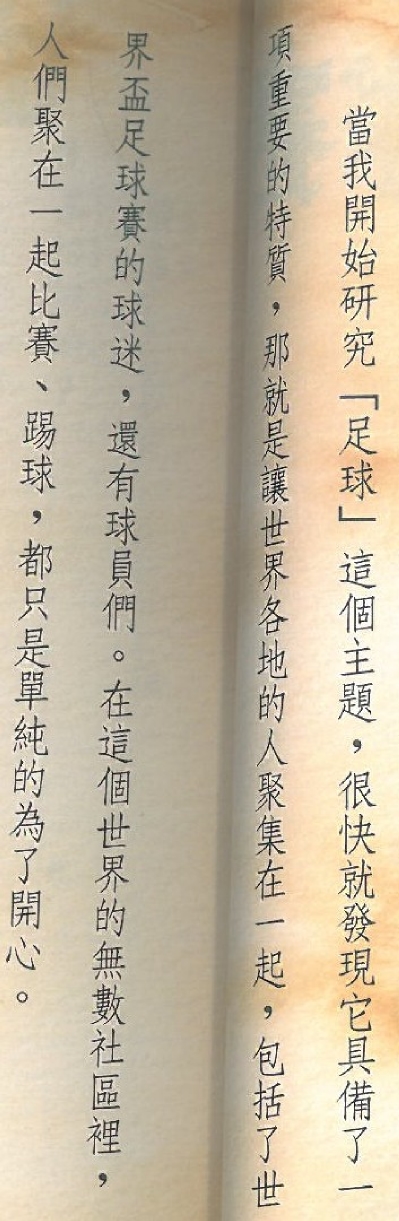 當我開始研究「足球」這個主題，很快就發現它具備了一
項重要的特質，那就是讓世界各地的人聚集在一起，包括了世
界盃足球賽的球迷，還有球員們。在這個世界的無數社區裡，
人們聚在一起比賽、踢球，都只是單純的為了開心。